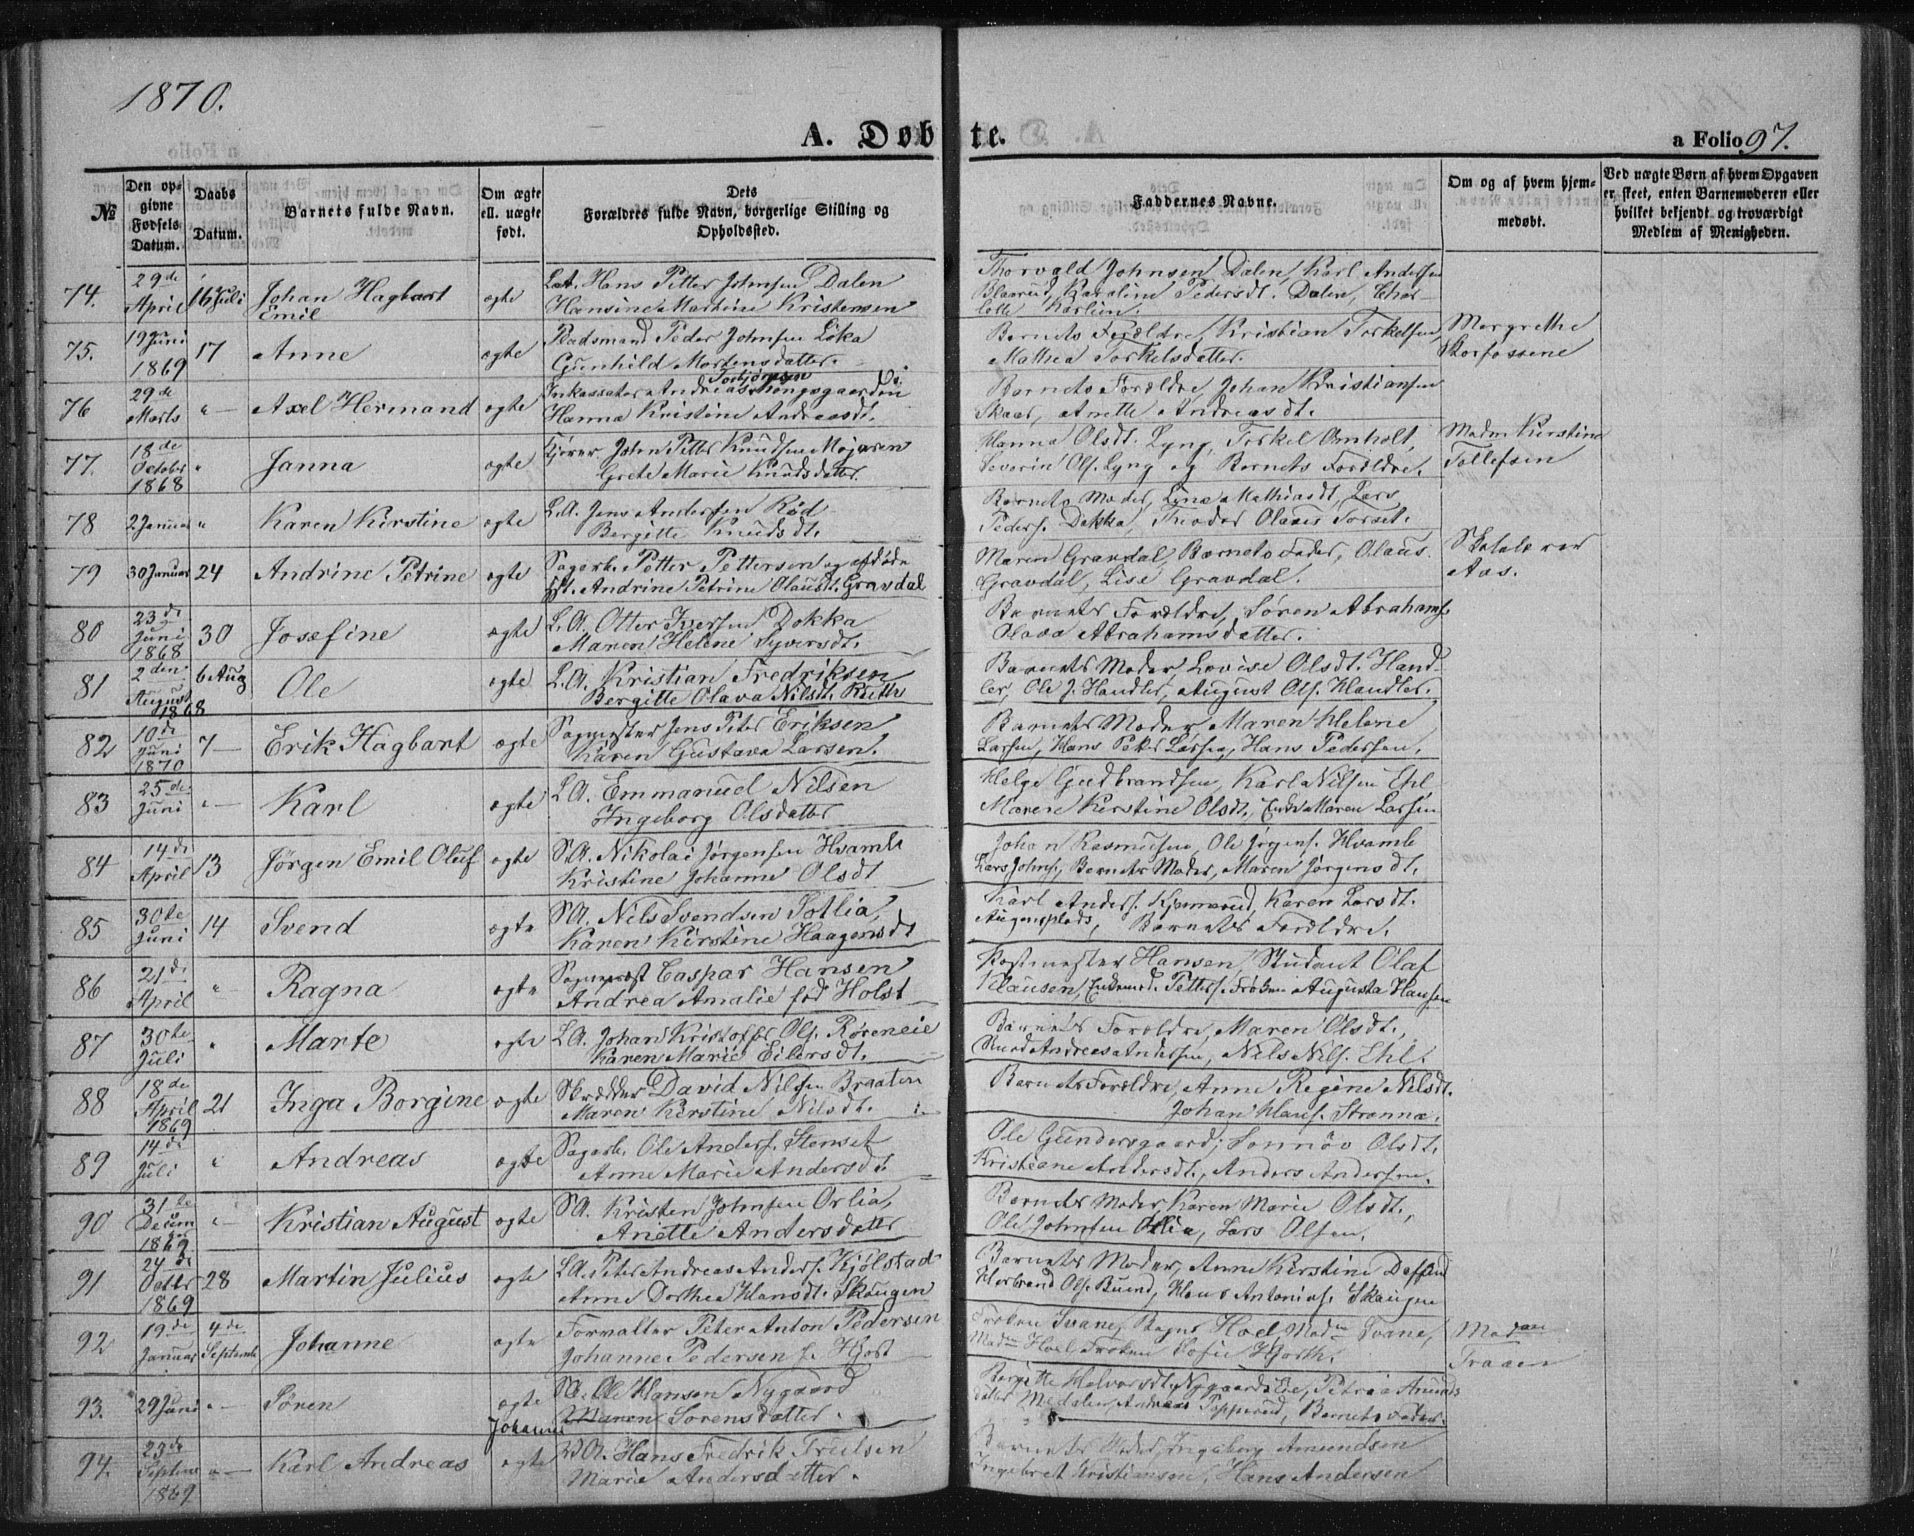 1870.
A. Døbte.
a Folio 97.
№
Den opgivne Fødsels Datum.
Daabs Datum.
Barnets fulde Navn.
Om ægte ell. uægte født.
Dets Forældres fulde Navn, borgerlige Stilling og Opholdssted.
Faddernes Navne.
Om og af hvem hjemmedøbt.
Ved uægte Børn af hvem Opgaven er skeet, enten Barnemoderen eller hvilket bekjendt og troværdigt Medlem af Menigheden.
74. 29de April 16 Juli Johan Hagbart Emil ægte Hans Petter Johnsen Dalen
Hansine Martine Kristensen
Thorvald Johnsen Dalen, Karl Andersen
Blaarud, Karoline Pedersdt. Dalen, Charlotte Karlsen.
75. 19 Juni 1869 17 Anne ægte Pladsmand Peder Johnsen Løka
Gunhild Mortensdatter.
Barnets Forældre, Kristian Torkelsen,
Mathea Torkelsdatter.
Margrethe Korfossene
76 29de Marts " Axel Hermand ægte Inkassator Andreas Torbjørnsen
Hanna Kristine Andreasdt.
Barnets Forældre, Johan Kristiansen
Skaar, Anette Andreasdt.
77. 18de October 1868 " Janna ægte John Petter Knudsen Mojaren
Grete Marie Knudsdatter.
Hanna Olsdt. Lyng, Torkel Omholt,
Severin Ols. Lyng og Barnets Forældre.
Madm Kirstine Tollefsen
78 2 Januar " Karen Kirstine ægte L.A. Jens Andersen Rød
Bergitte Knudsdt.
Barnets Moder, Line Mathiasdt, Lars
Peders. Dokka, Theodor Olaves Torset.
79 30 Januar 24 Andrine Petrine ægte Sagarb. Petter Pettersen og afdøde
Andrine Petrine Olausdt. Gravdal
Maren Gravdal, Barnets Fader, Olaus
Gravdal, Lise Gravdal.
Aas.
80 23de Juni 1868 30 Josefine ægte L.A. Otter Iversen Dokka
Maren Helene Syversdt.
Barnets Forældre, Søren Abrahams.
Olava Abrahamsdatter.
81 2den August 1868 6 Aug Ole ægte L.A. Kristian Fredriksen
Bergitte Olava Nilsdt. Ruth
Barnets Moder, Lovise Olsdt. Handler,
Ole J. Handler, August Ols. Handler.
82 10de Juni 1870 7 Erik Hagbart ægte Sagmester Jens Peter Eriksen
Karen Gustava Larsen.
Barnets Moder, Maren Helene
Larsen, Hans Peter Larsen, Hans Pedersen.
83 25de Juni " Karl ægte L.A. Emmanuel Nilsen
Ingeborg Olsdatter
Helge Gudbrandsen, Karl Nilsen Ehl
Maren Kirstine Olsdt., Enke Maren Larsen
84 14de April 13 Jørgen Emil Oluf ægte S.A. Nikolai Jørgensen Hvamb
Kristine Johanne Olsdt
Johan Rasmusen, Ole Jørgens. Hvamb
Lars Johns., Barnets Moder, Maren Jørgensdt.
85 30te Juni 14 Svend ægte S.A. Nils Svendsen Sotlia,
Karen Kirstine Haagensdt
Karl Anders. Karen Larsdt.
Augensplads, Barnets Forældre.
86 21de April " Ragna ægte Sagmest Caspar Hansen
Andrea Amalie fød Holst
Postmester Hansen, Student Olaf
Klausen, Enkemd. Petters. Frøken Augusta Hansen
87 30te Juli " Marte ægte L.A. Johan Kristoffer Ols. Røreneie
Karen Marie Eilersdt.
Barnets Forældre, Maren Olsdt.,
Smed Andreas Andersen, Nils Nils. Ehl.
88 18de April 1869 21 Inga Borgine ægte Skrædder David Nilsen Braaten
Maren Kirstine Nilsdt.
Barnets Forældre, Anne Regine Nilsdt.
Johan Hans. Strønnæ.
89 14de Juli " Andreas ægte Sagarb. Ole Anders. Stenset
Anne Marie Andersdt.
Ole Gundersgaard, Sonnøv Olsdt.
Kristiane Andersdt., Anders Andersen.
90 31te Decem 1869 " Kristian August ægte S.A. Kristen Johnsen Orlia,
Anette Andersdatter
Barnets Moder, Karen Marie Olsdt.,
Ole Johnsen Orlia, Lars Olsen.
91 24de Octbr 1869 28 Martin Julius ægte L.A. Peter Andreas Anders. Kjølstad
Anne Dorthea Hansdt. Skougen
Barnets Moder, Anne Kirstine
Herbrand Ols. Buend, Hans Antonius. Skaugne
92 19de Januar 4de Septemb Johanne ægte Forvalter Peter Anton Pedersen
Johanne Pedersen f. Hjort
Frøken Svane, Hoel, Madm Svane,
Madm Hoel Frøken Sofie Hjorth.
Madam Traaen
93. 29 Juni " Søren ægte S.A. Ole Hansen Nygaard
Johanne Maren Sørensdatter.
Birgitte Halvorsdt. Petrea Amunds
datter Medalen, Andreas Tøpperud, Barnets Fader.
94. 23de Septem 1869 " Karl Andreas ægte Hans Fredrik Truelsen
Marie Andersdatter.
Barnets Moder, Ingeborg Amundsen
Ingebret Kristiansen, Hans Andersen